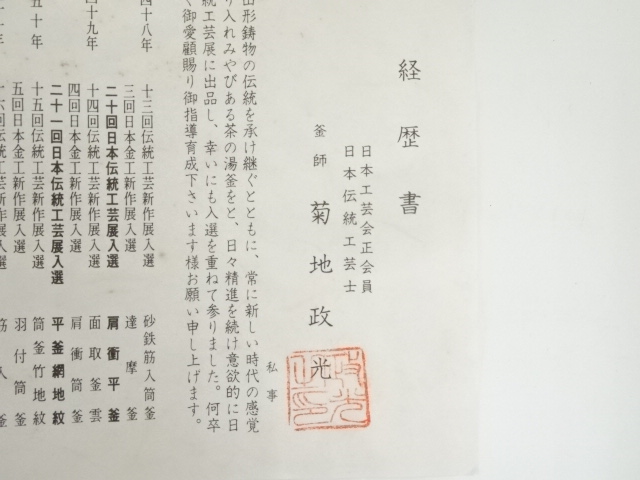 経歴書
日本工芸会正会員
日本伝統工芸士
釜師 菊地政光
私事
山形鋳物の伝統を承け継ぐとともに、常に新しい時代の感覚
り入れみやびある茶の湯釜をと、日々精進を続け意欲的に日
統工芸展に出品し、幸いにも入選を重ねて参りました。何卒
御愛顧賜り御指導育成下さいます様お願い申し上げます。
四十八年 十三回伝統工芸新作展入選 砂鉄筋入筒釜
三回日本金工新作展入選 達摩釜
二十回日本伝統工芸展入選 肩衝平釜
四十九年 十四回伝統工芸新作展入選 面取釜雲
四回日本金工新作展入選 肩衝筒釜
二十一回日本伝統工芸展入選 平釜網地紋
五十年 十五回伝統工芸新作展入選 筒釜竹地紋
五回日本金工新作展入選 羽付筒釜
六回伝統工芸新作展入選 筋入釜